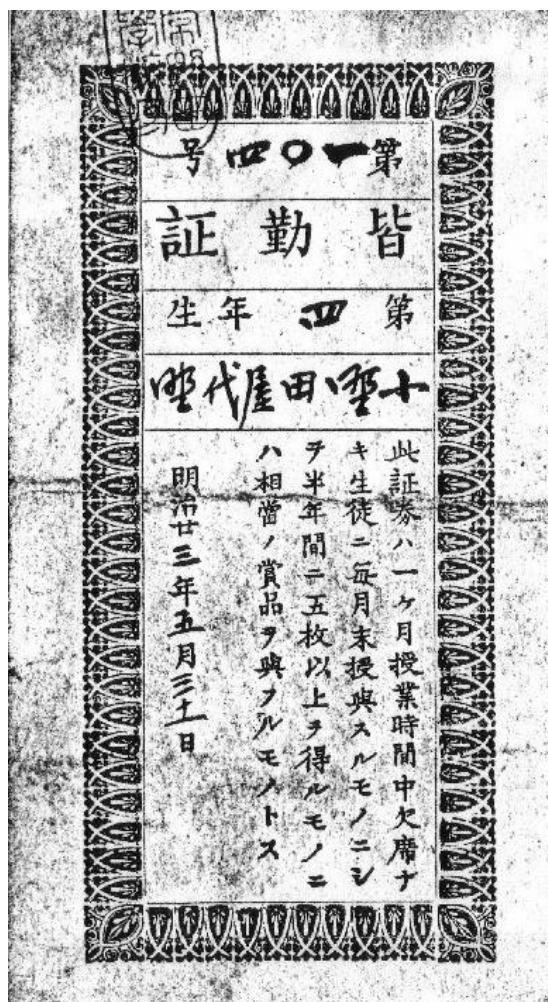 第一〇四号
皆勤証
第四年生
田屋代
此証券ハ一ヶ月授業時間中欠席ナ
キ生徒ニ毎月末授與スルモノニシ
テ半年間ニ五枚以上ヲ得ルモノニ
ハ相當ノ賞品ヲ與フルモノトス
明治廿三年五月三十一日